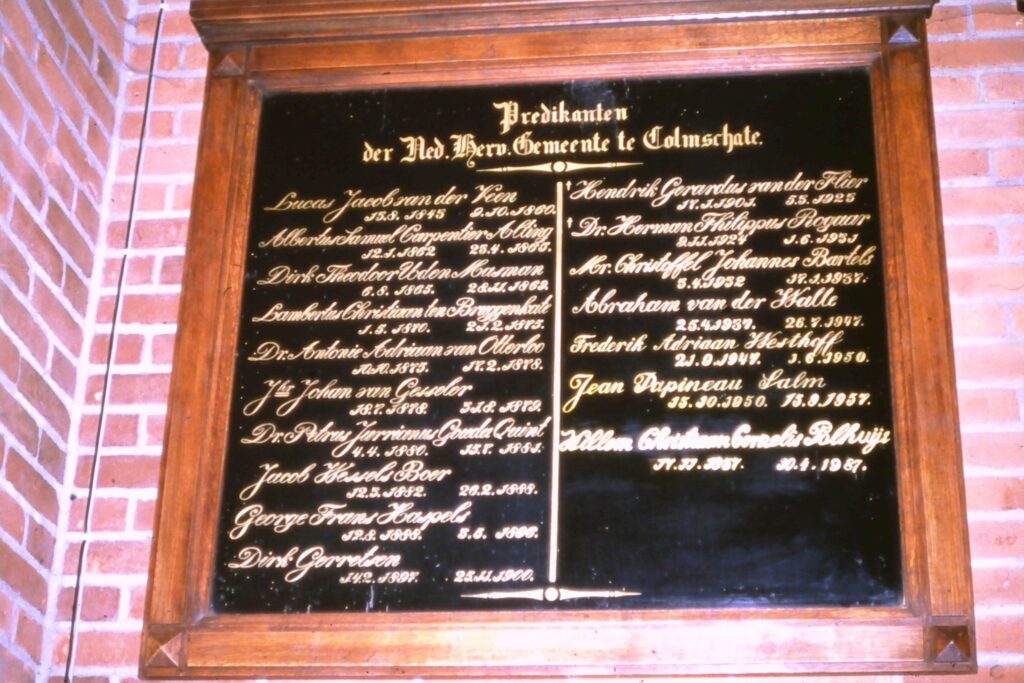 Predikanten
der Ned. Herv. Gemeente te Colmschate.
Lucas Jacob van der Veen
13.8. 1845 9.10.1860.
Albertus Samuel Carpentier Alting
12.1.1862 23.4.1865.
Dirk Theodoor Uden Masman
6.8.1865. 28.11.1869.
Lambertus Christiaan ten Bruggenkate
1.5.1870. 21.2.1875.
Dr. Antonie Adriaan van Otterloo
10.10.1875. 17.2.1878.
Jhr Johan van Gesseler
18.7.1878. 31.8.1879.
Dr. Petrus Jurrianus Gouda Quint
4.4.1880. 1881.
Jacob Wessels Boer
12.3.1882. 26.2.1888.
George Frans Haspels
12.8.1888. 1896.
Dirk Gerretsen
14.2.1897. 25.11.1900.
† Hendrik Gerardus van der Flier
17.1.1901. 5.5.1925
† Dr. Herman Philippus Rogaar
9.11.1924 1.6.1931
Mr. Christoffel Johannes Bartels
3.4.1932 17.1.1937.
Abraham van der Walle
25.4.1937. 26.7.1947.
Frederik Adriaan Westhoff
21.9.1947. 1.6.1950.
Jean Papineau Salm
15.10.1950. 15.9.1957.
Willem Christiaan Cornelis Polhuijs
17.11.1957. 30.4.1987.